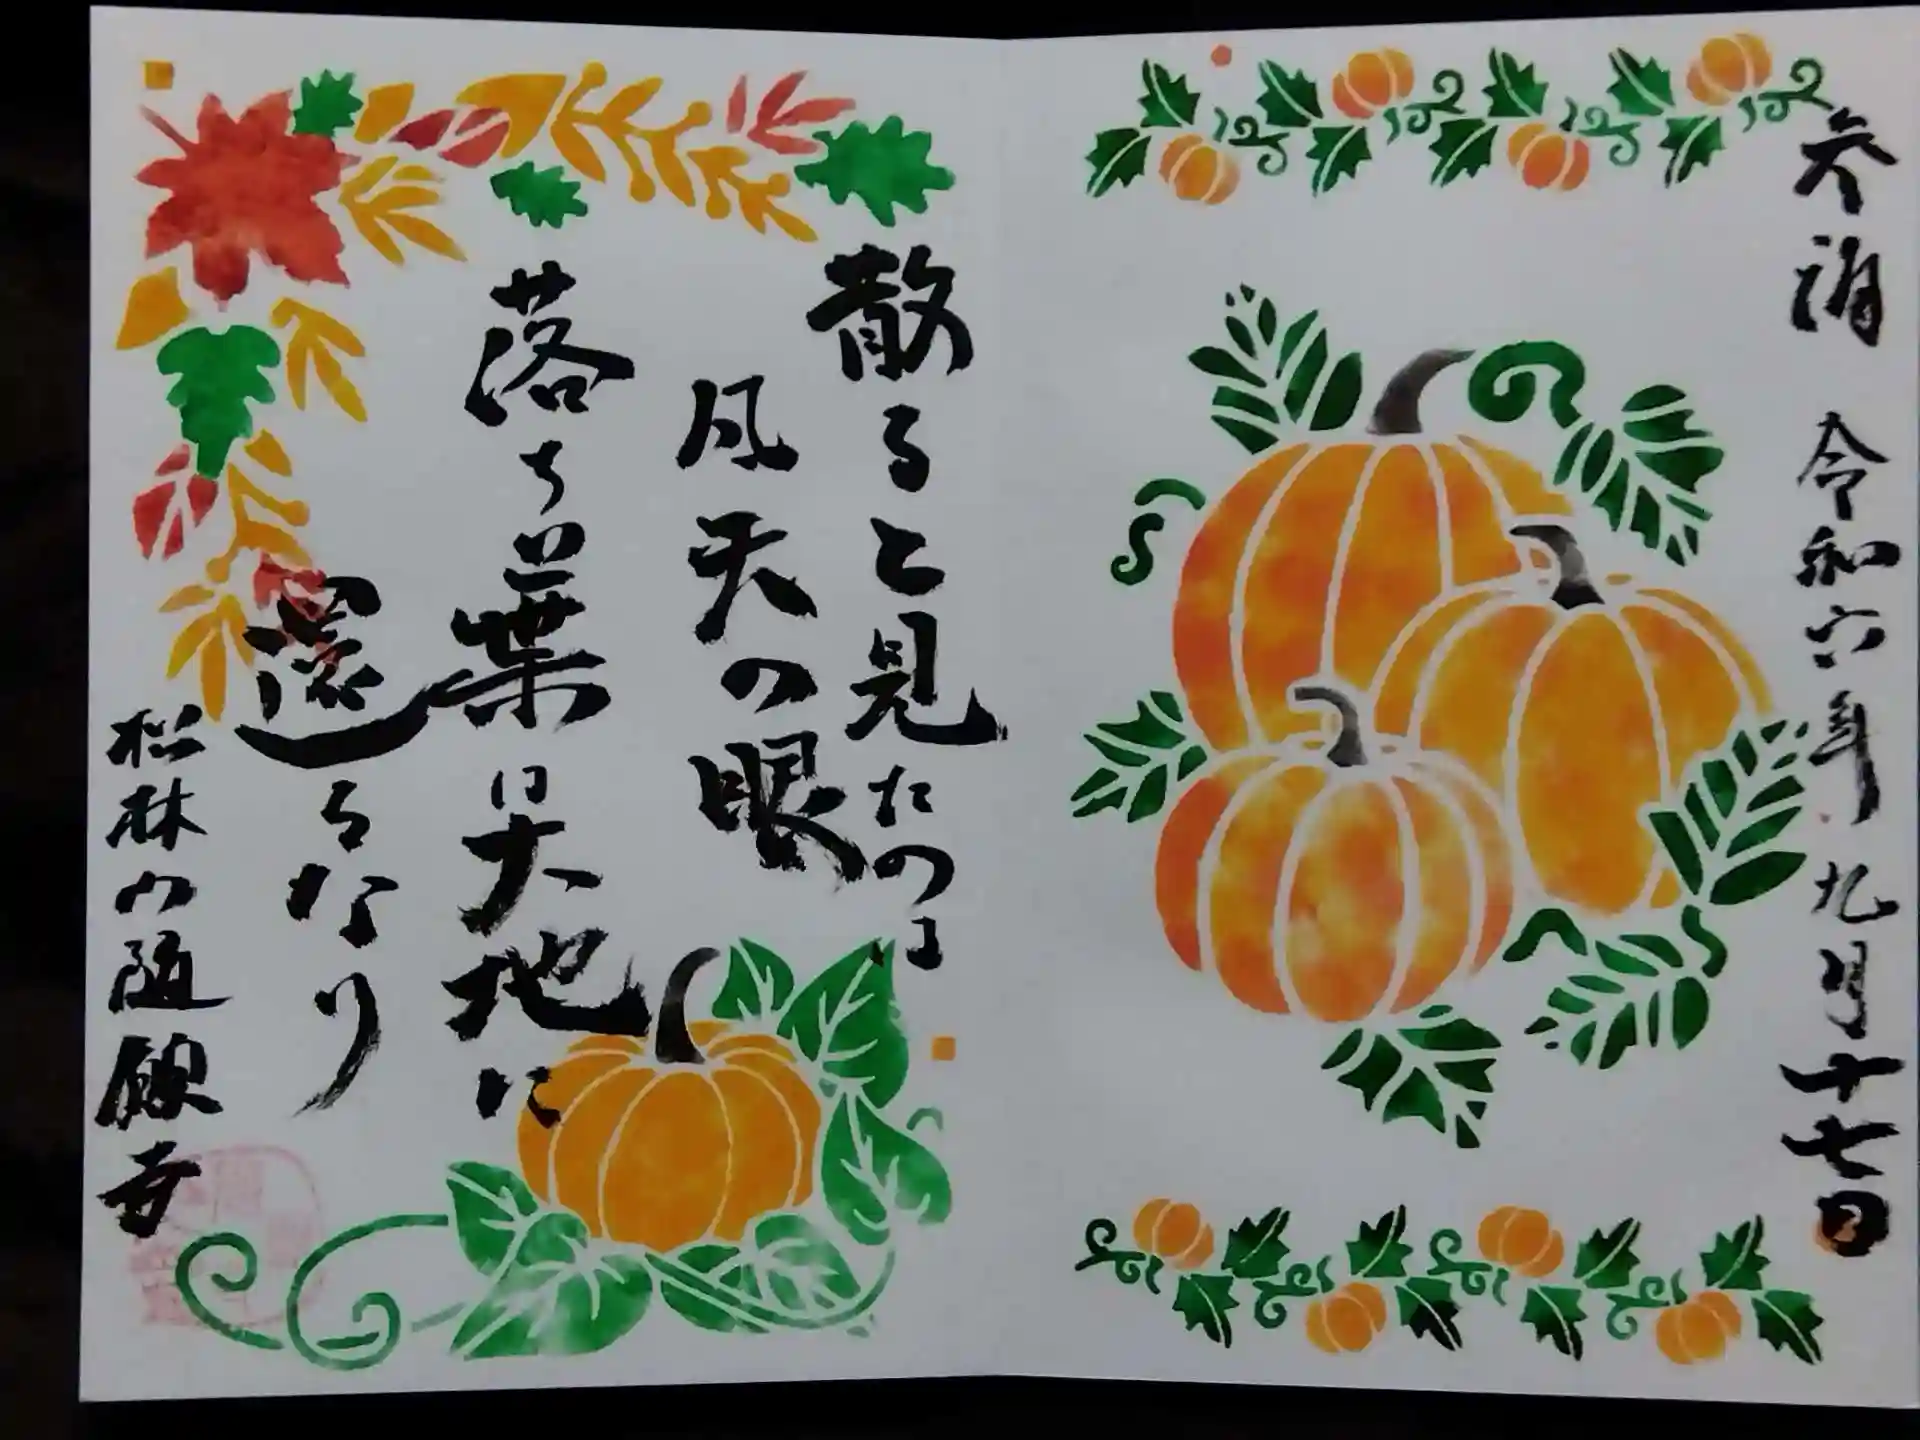 参詣 令和六年九月十七日
散ると見たのは
凡夫の眼
落ち葉は大地に
還るなり
松林山随願寺